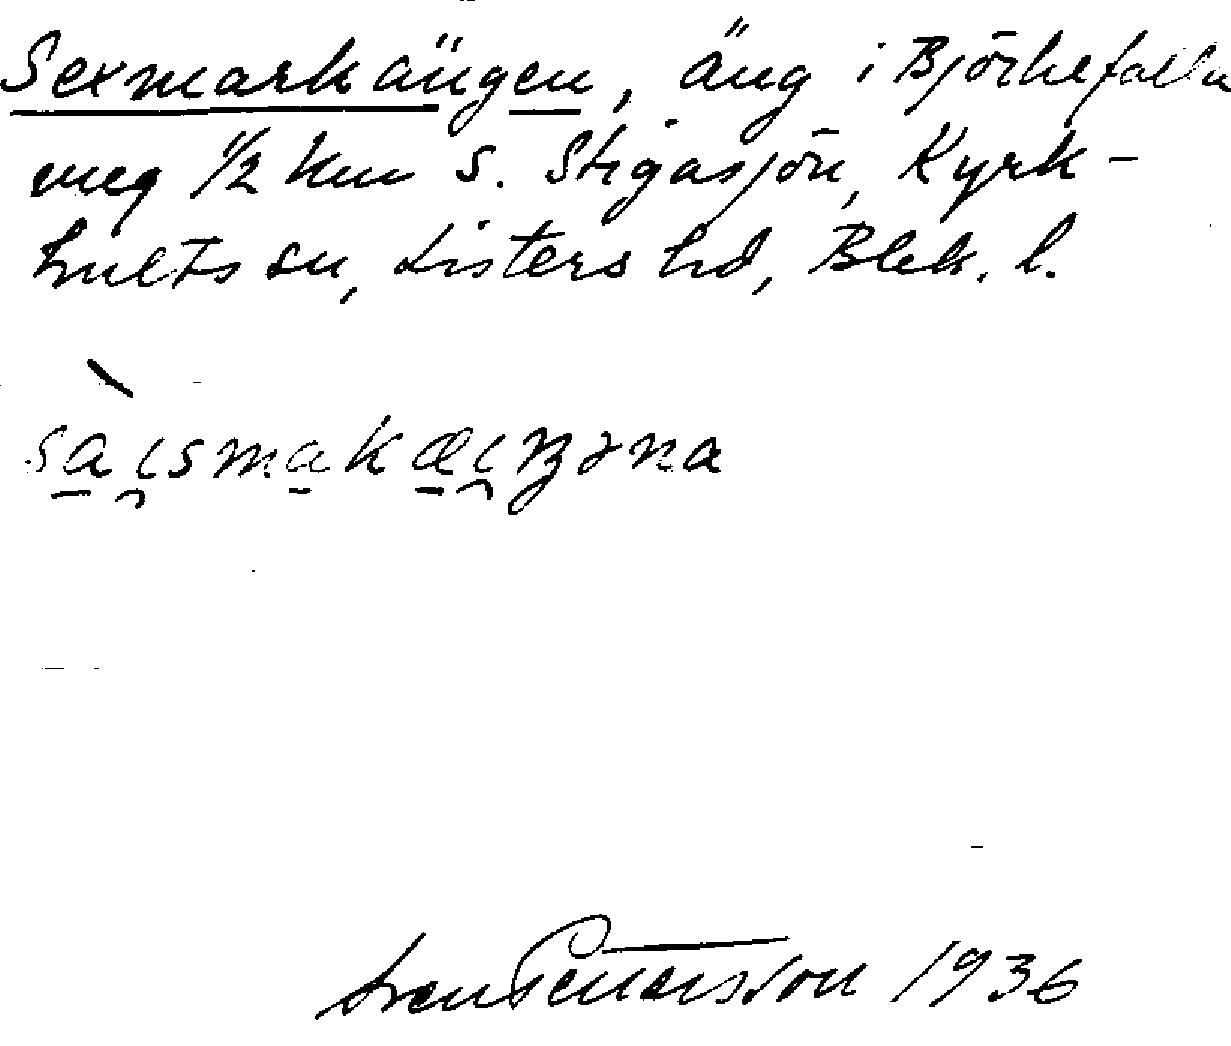 Sexmarkängen, äng i Björkefalla
meg 1/2 km S. Stigasjön, Kyrk-
hults sn, Listers hd, Blek. l.
sàismakæiŋəna
Sven Pettersson 1936